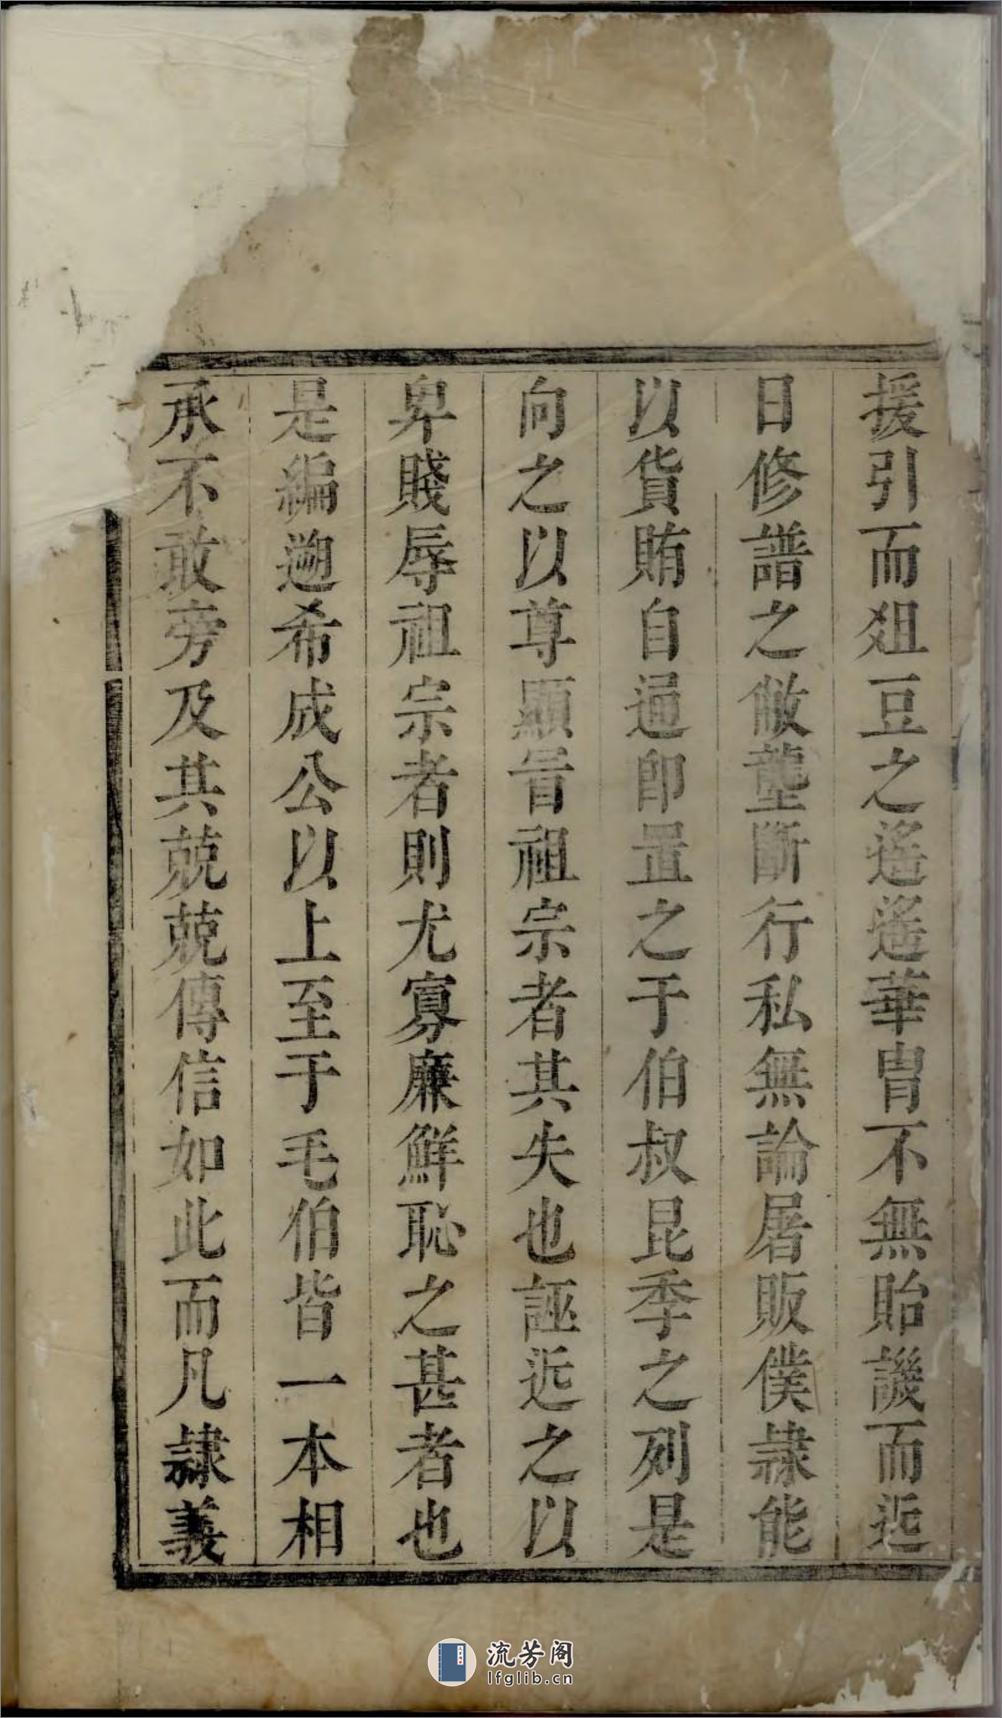 援引而俎豆之遙遙華胄不無貽譏而近
日修譜之敝壟斷行私無論屠販僕隸能
以貨賄自通即置之于伯叔昆季之列是
向之以尊顯冒祖宗者其失也誣近之以
卑賤辱祖宗者則尤寡廉鮮恥之甚者也
是編遡希成公以上至于毛伯皆一本相
承不敢旁及其兢兢傳信如此而凡隸義
流芳阁
lfglib.cn